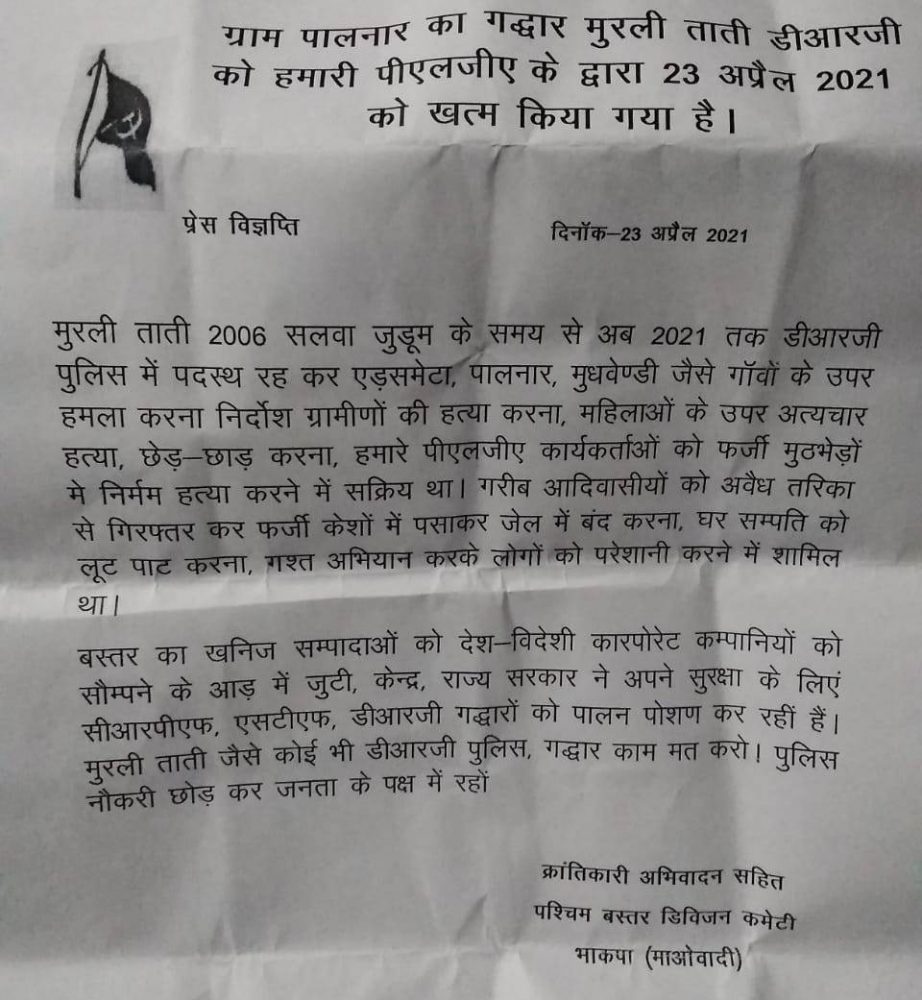 ग्राम पालनार का गद्धार मुरली ताती डीआरजी
को हमारी पीएलजीए के द्वारा 23 अप्रैल 2021
को खत्म किया गया है।
प्रेस विज्ञप्ति दिनॉक–23 अप्रैल 2021
मुरली ताती 2006 सलवा जुडूम के समय से अब 2021 तक डीआरजी
पुलिस में पदस्थ रह कर एड़समेटा, पालनार, मुधवेण्डी जैसे गॉवों के उपर
हमला करना निर्दोश ग्रामीणों की हत्या करना, महिलाओं के उपर अत्यचार
हत्या, छेड़–छाड़ करना, हमारे पीएलजीए कार्यकर्ताओं को फर्जी मुठभेड़ों
मे निर्मम हत्या करने में सक्रिय था। गरीब आदिवासीयों को अवैध तरिका
से गिरफ्तर कर फर्जी केशों में पसाकर जेल में बंद करना, घर सम्पति को
लूट पाट करना, गश्त अभियान करके लोगों को परेशानी करने में शामिल
था।
बस्तर का खनिज सम्पादाओं को देश–विदेशी कारपोरेट कम्पानियों को
सौम्पने के आड़ में जुटी, केन्द्र, राज्य सरकार ने अपने सुरक्षा के लिएं
सीआरपीएफ, एसटीएफ, डीआरजी गद्धारों को पालन पोशण कर रहीं हैं।
मुरली ताती जैसे कोई भी डीआरजी पुलिस, गद्धार काम मत करो। पुलिस
नौकरी छोड़ कर जनता के पक्ष में रहों
क्रांतिकारी अभिवादन सहित
पश्चिम बस्तर डिविजन कमेटी
भाकपा (माओवादी)